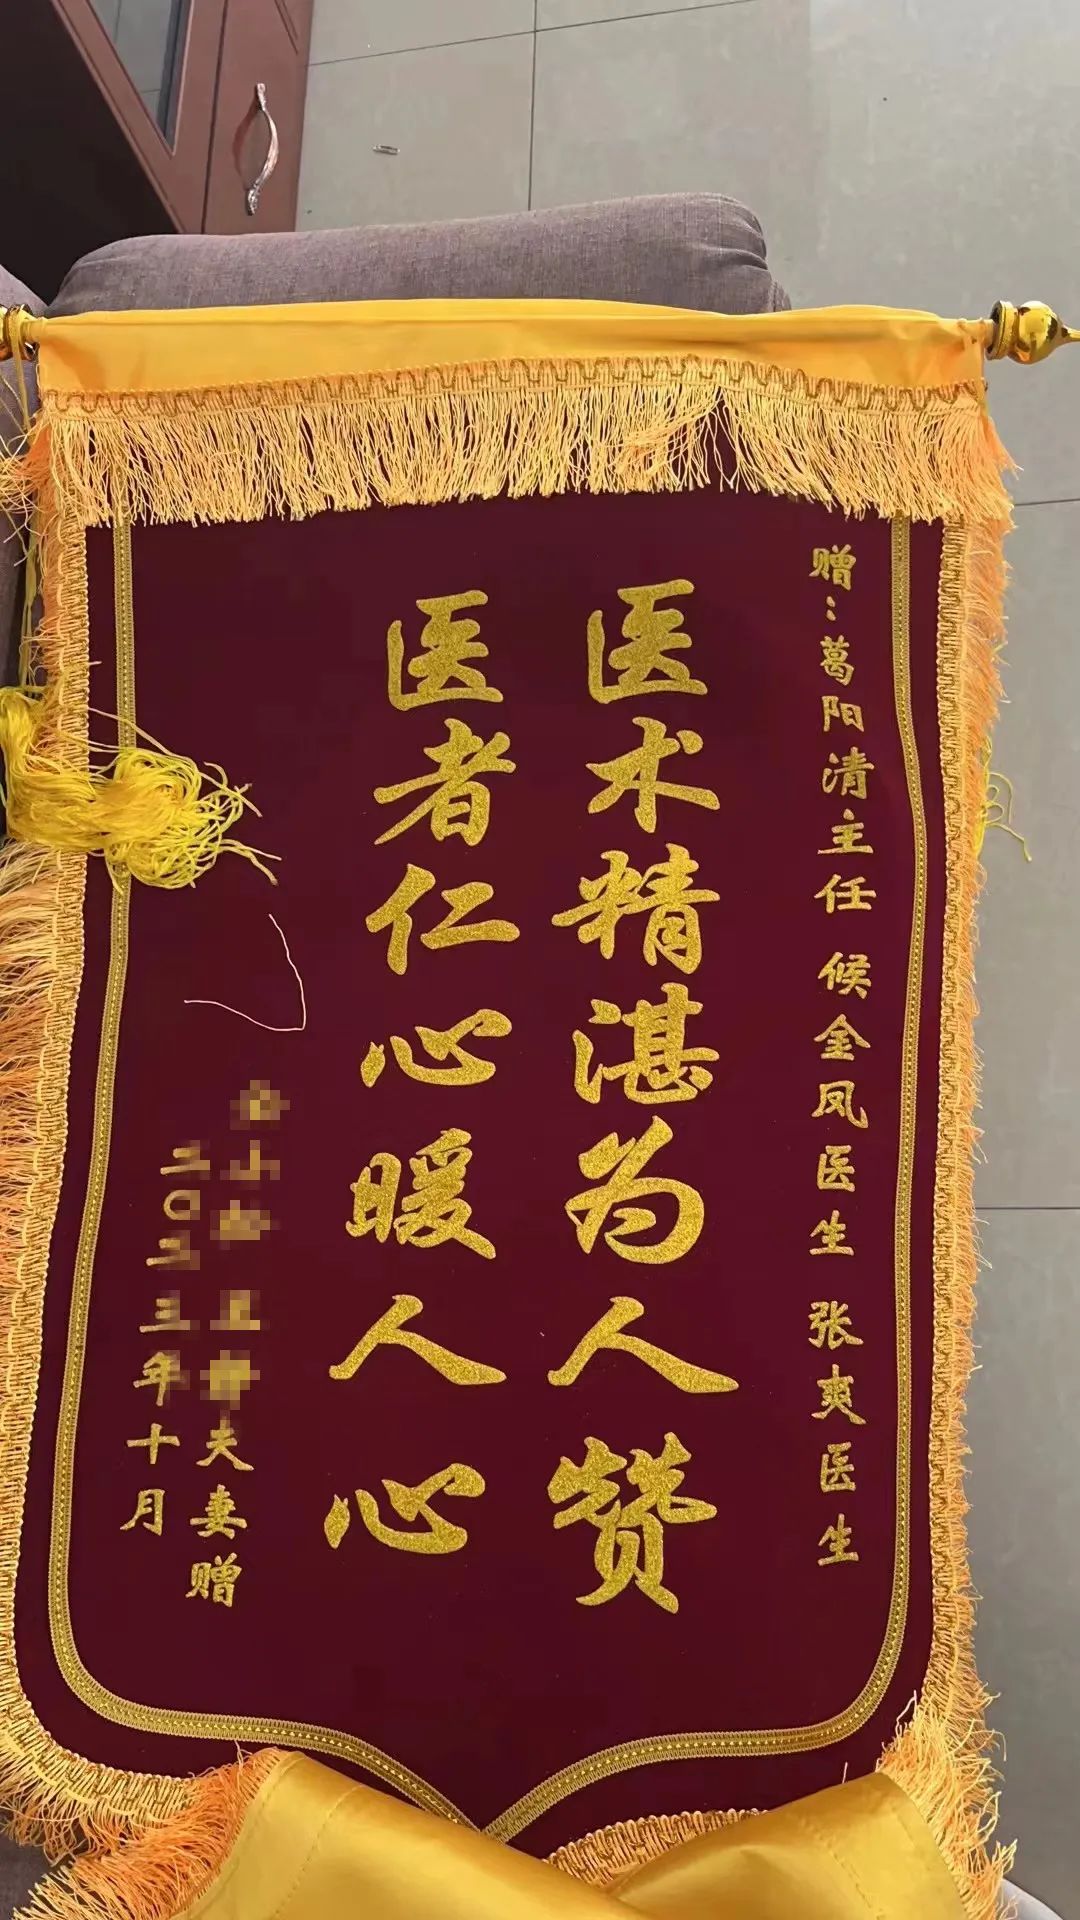 赠：葛阳清主任 候金凤医生 张爽医生
医术精湛为人赞
医者仁心暖人心
夫妻赠
二〇二三年十月